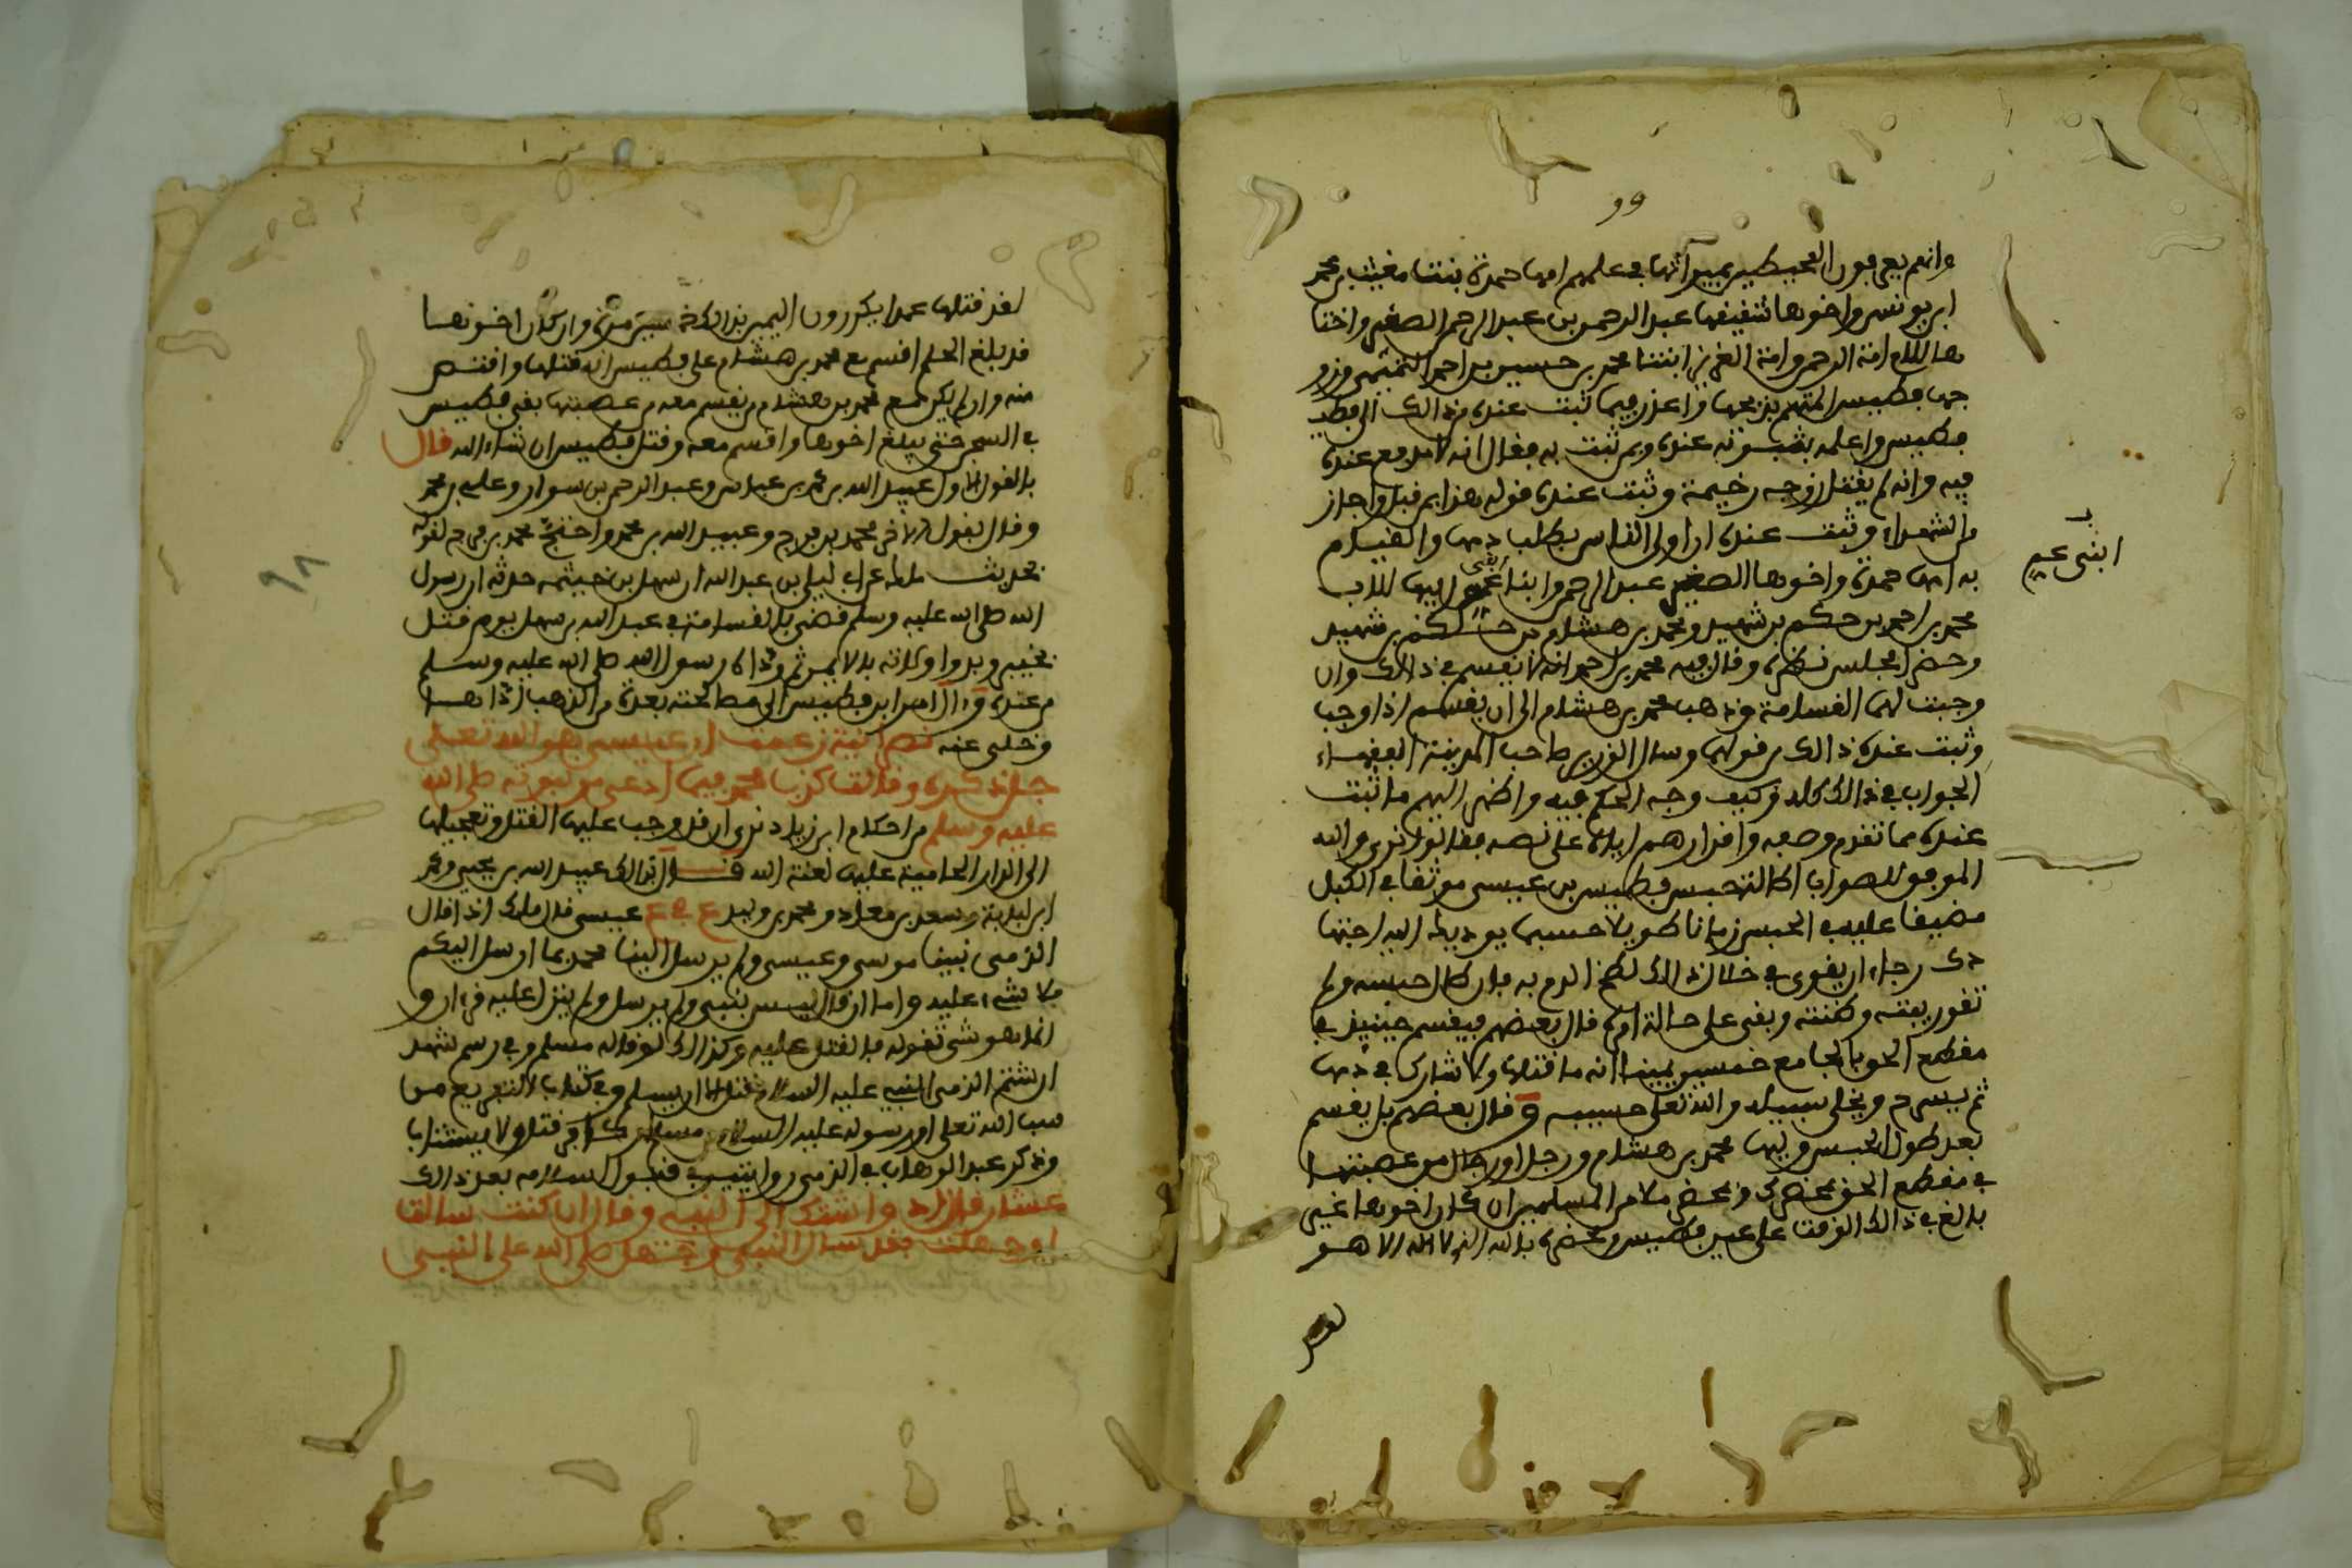 وو
وانهم يعرفون المحيطين بميراثها في علمهم امها حمدة بنت مغيث بن محمد
ابن يونس واخوها شقيقها عبد الرحمن بن عبد الرحمن الصغير واختا
ها للام امة الرحمن وامة العزيز ابنتا محمد بن حسين بن احمد التميمي وزو
جها فطيس المتهم بذبحها واعذر فيما ثبت عنده من ذالك الى
فطيس واعلمه بثبوته عنده وبمن ثبت به فقال انه لا مدفع عنده
فيه وانه لم يقتل زوجه رخيمة وثبت عنده قوله هذا بمن قبل واجاز
من الشهداء وثبت عنده ان اولى الناس بطلب دمها والقيام
به امها حمدة واخوها الصغير عبد الرحمن وابنا عم ابيها للاب
ابني عم
محمد بن احمد بن حكم بن شهيد ومحمد بن هشام بن حكم بن شهيد
وحضر مجلس نظره وقال فيه محمد بن احمد انه لا يقسم في ذالك وان
وجبت لهما القسامة وذهب محمد بن هشام الى ان يقسم اذا وجب
وثبت عنده ذالك من قولهما وسال الوزير صاحب المدينة الفقهاء
الجواب في ذالك كله وكيف وجه الحكم فيه واظهر اليهم ما ثبت
عنده مما تقدم وصفه واقرارهم اياه على نصه فقالوا نرى والله
الموفق للصواب اطالة حبس فطيس بن عيسى موثقا في الكبل
مضيقا عليه في الحبس زمانا طويلا حسبما يوديك اليه اجتها
دك رجاء ان يقوى في خلال ذالك لطخ الدم به فان طال حبسه ولم
تقو ريبته وظنته وبقي على حالة امره قال بعضهم فيقسم حينيذ في
مقطع الحق بالجامع خمسين يمينا انه ما قتلها ولا شارك في دمها
ثم يسرح ويخلى سبيله والله تعلى حسيبه وقال بعضهم بل يقسم
بعد طول الحبس وليها محمد بن هشام ورجل او رجال من عصبتها
في مقطع الحق بمحضرك وبمحضر ملا من المسلمين ان كان اخوها غير
بالغ في ذالك الوقت على عين فطيس وبمحضره بالله الذي لا اله الا هو
لقد
لقد قتلها عمدا يكررون اليمين بذالك خمسين مرة وان كان اخوها
قد بلغ الحلم اقسم مع محمد بن هشام على فطيس انه قتلها واقتص
منه وان لم يكن مع محمد بن هشام من يقسم معه من عصبتها بقي فطيس
في السجن حتى يبلغ اخوها واقسم معه وقتل فطيس ان شاء الله قال
بالقول الاول عبيد الله بن محمد بن عبد الله وعبد الرحمن بن سوار وعلي بن محمد
وقال بقول الاخر محمد بن فرج وعبيد الله بن محمد واحتج محمد بن فرج لقوله
بحديث ملك عن ابي ليلى بن عبد الله ان سهل بن خيثمة حدثه ان رسول
الله صلى الله عليه وسلم قضى بالقسامة في عبد الله بن سهل يوم قتل
بخيبر وبدوا ولاته بالايمين ثم وداه رسول الله صلى الله عليه وسلم
من عنده وءال امر ابن فطيس الى مصالحته بعدة من الذهب اداها
وخلي عنه نصرانية زعمت ان عيسى هو الله تعلى
جل ذكره وقالت كذب محمد فيما ادعى من نبوته صلى الله
عليه وسلم من احكام ابن زياد نرى ان قد وجب عليها القتل وتعجيلها
الى النار الحامية عليها لعنة الله قال بذالك عبيد الله بن يحيى ومحمد
ابن لبابة وسعد بن معاذ ومحمد بن وليد ع في ع عيسى قال ملك اذا قال
الذمي نبينا موسى وعيسى ولم يرسل الينا محمد بما ارسل اليكم
فلا شيء عليه واما ان قال ليس بنبي ولم يرسل ولم ينزل عليه قرءان و
انما هو شي تقوله فالقتل عليه وكذالك لو قاله مسلم وفي رسم شهد
ان شتم الذمي النبي عليه السلام قتل الا ان يسلم وفي كتاب التفريع من
سب الله تعلى او رسوله عليه السلام من مسلم او كافر قتل ولا يستتاب
وذكر عبد الوهاب في الذمي روايتين في قبول اسلامه بعد ذالك
عشار قال اد واشتك الى النبي وقال ان كنت سالت
او جهلت فقد سال النبي وجهل صلى الله على النبي
٩٨